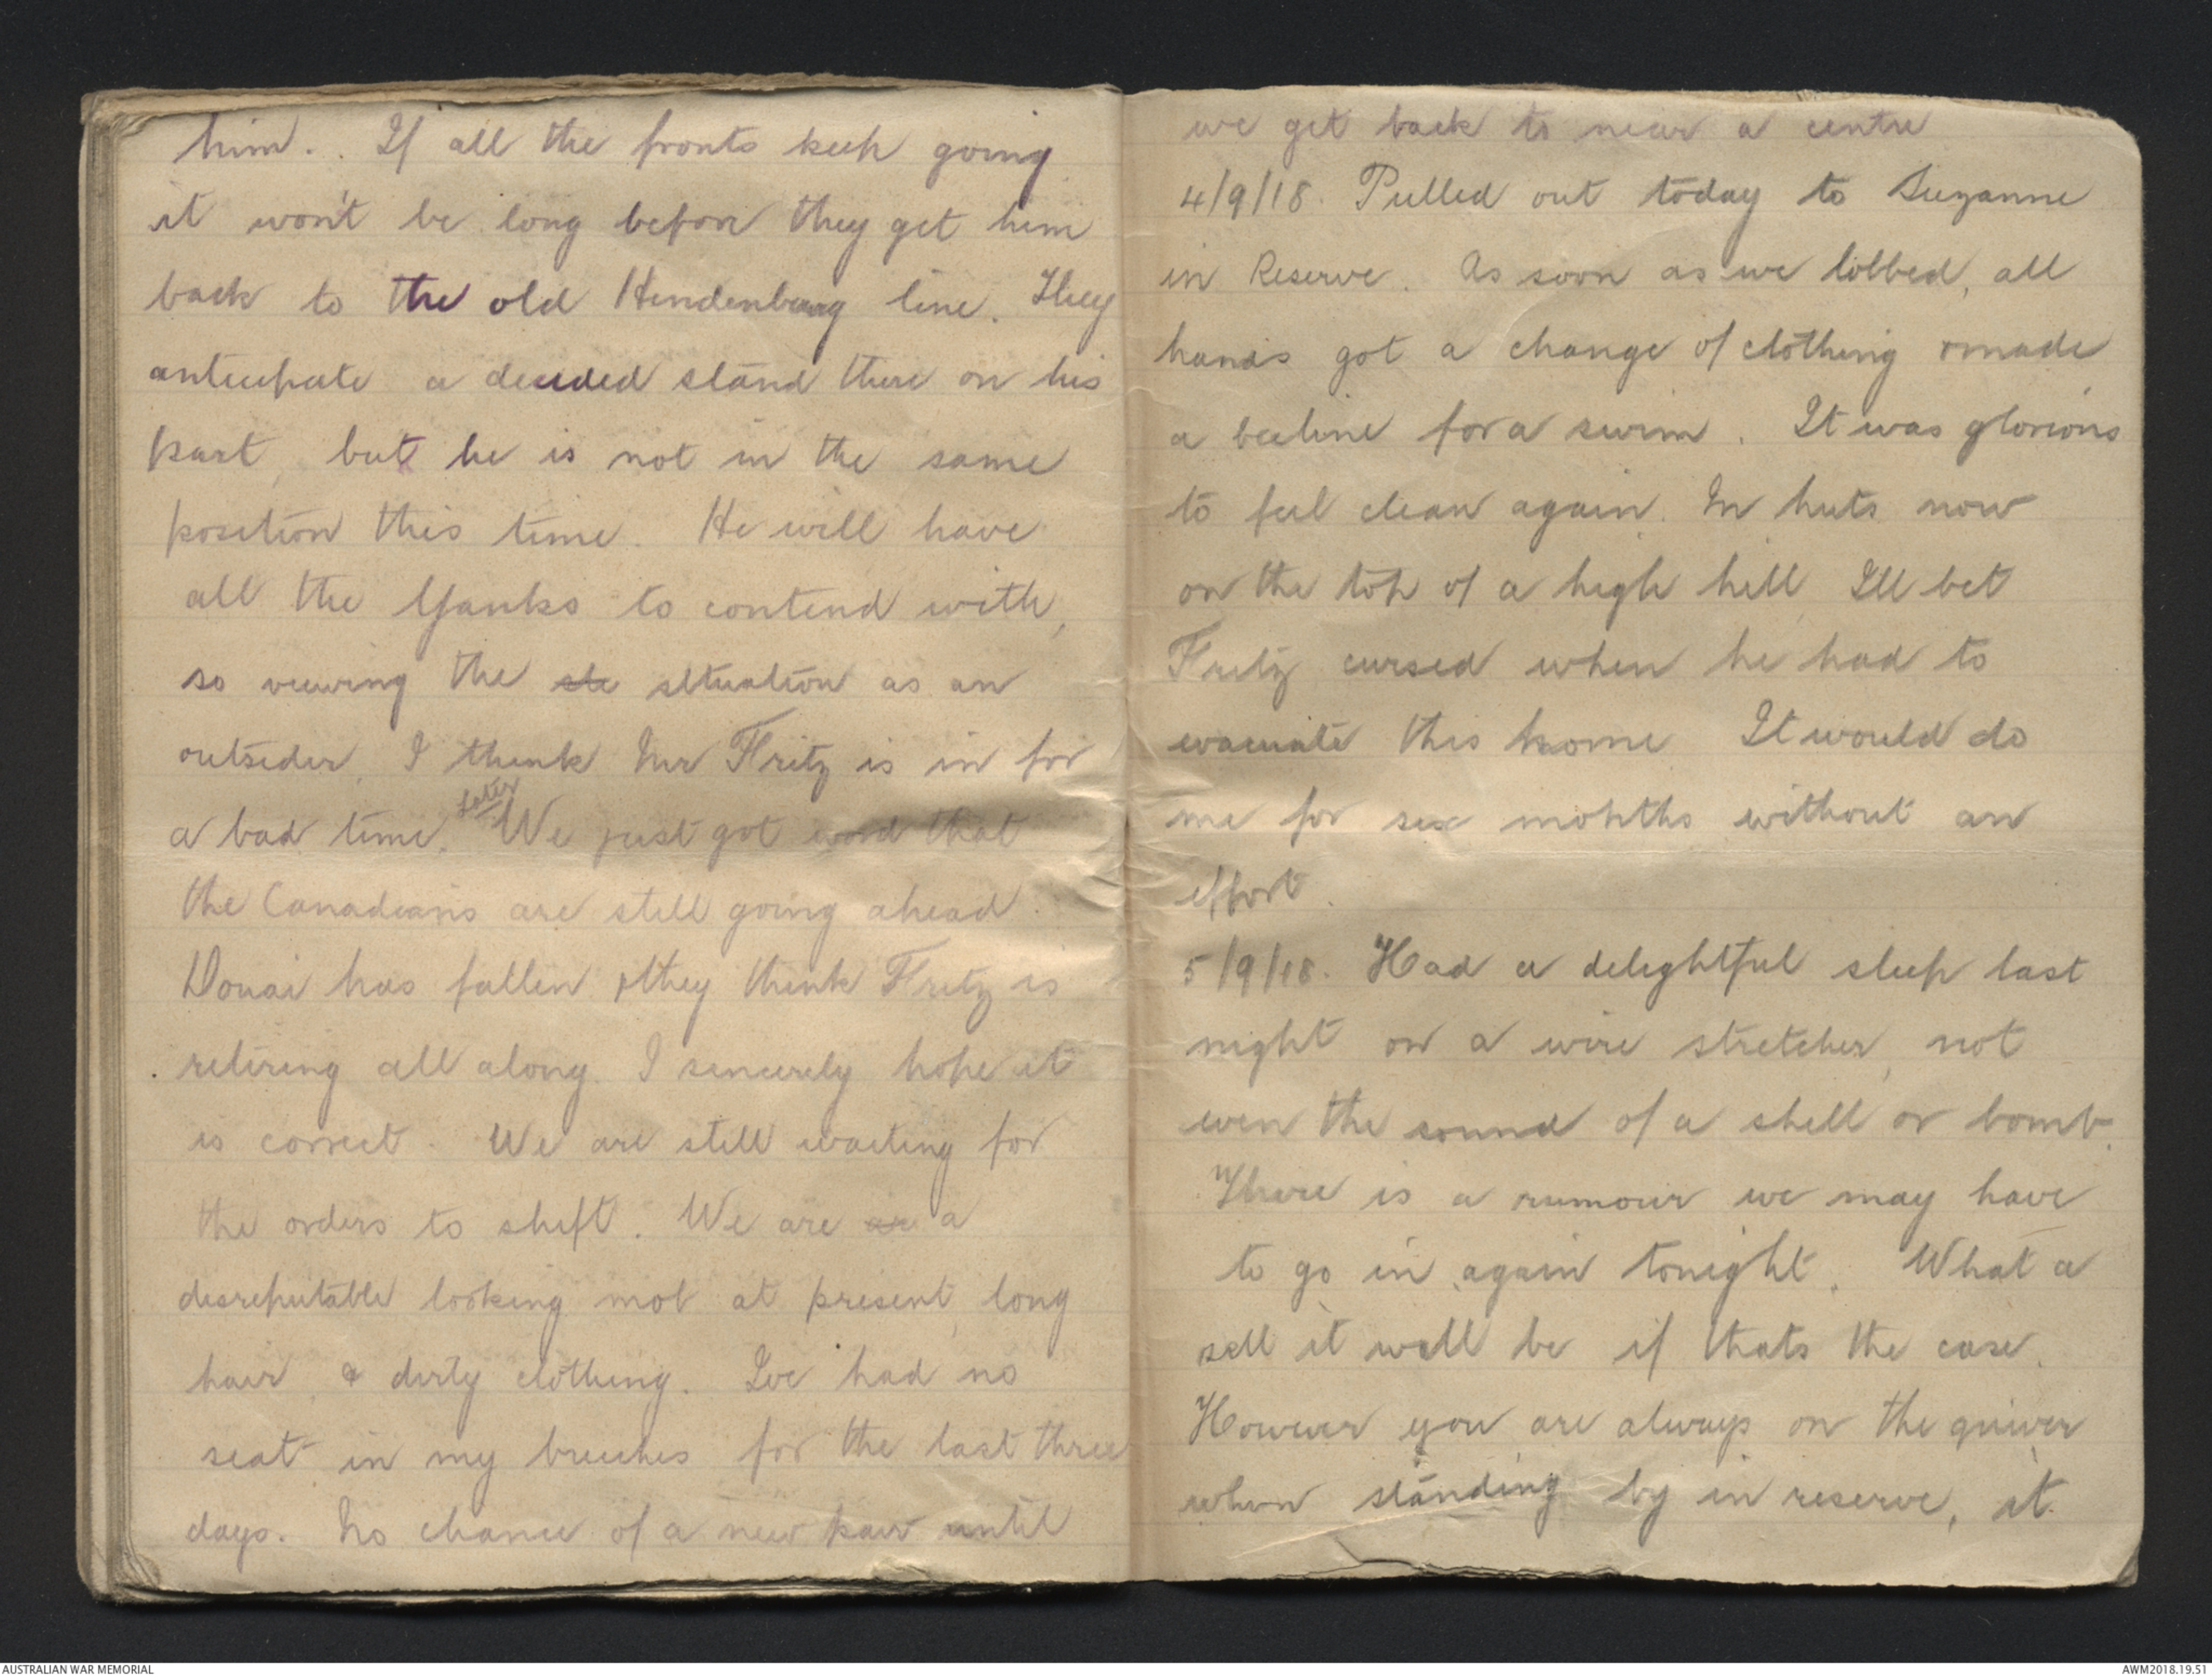 him.. If all the fronts keep going
it won't be long before they get him
back to the old Hindenburg line. They
anticipate a decided stand there on his
part, but he is not in the same
position this time. He will have
all the Yanks to contend with,
so viewing the ste situation as an
outsider, I think Mr Fritz is in for
a bad time. later We just got word that
the Canadians are still going ahead.
Douai has fallen & they think Fritz is
retiring all along. I sincerely hope it
is correct. We are still waiting for
the orders to shift. We are an a
disreputable looking mob at present, long
hair, & dirty clothing. Ive had no
seat in my breeches for the last three
days. No chance of a new pair until
we get back to near a centre
4/9/18. Pulled out today to Suzanne
in Reserve. As soon as we lobbed, all
hands got a change of clothing & made
a beeline for a swim. It was glorious
to feel clean again. In huts now
on the top of a high hill. I'll bet
Fritz cursed when he had to
evacuate this home. It would do
me for six months without an
effort.
5/9/18. Had a delightful sleep last
night on a wire stretcher, not
even the sound of a shell or bomb.
There is a rumour we may have
to go in again tonight. What a
sell it will be if thats the case.
However you are always on the quiver
when standing by in reserve, it
AUSTRALIAN WAR MEMORIAL
AWM2018.19.51